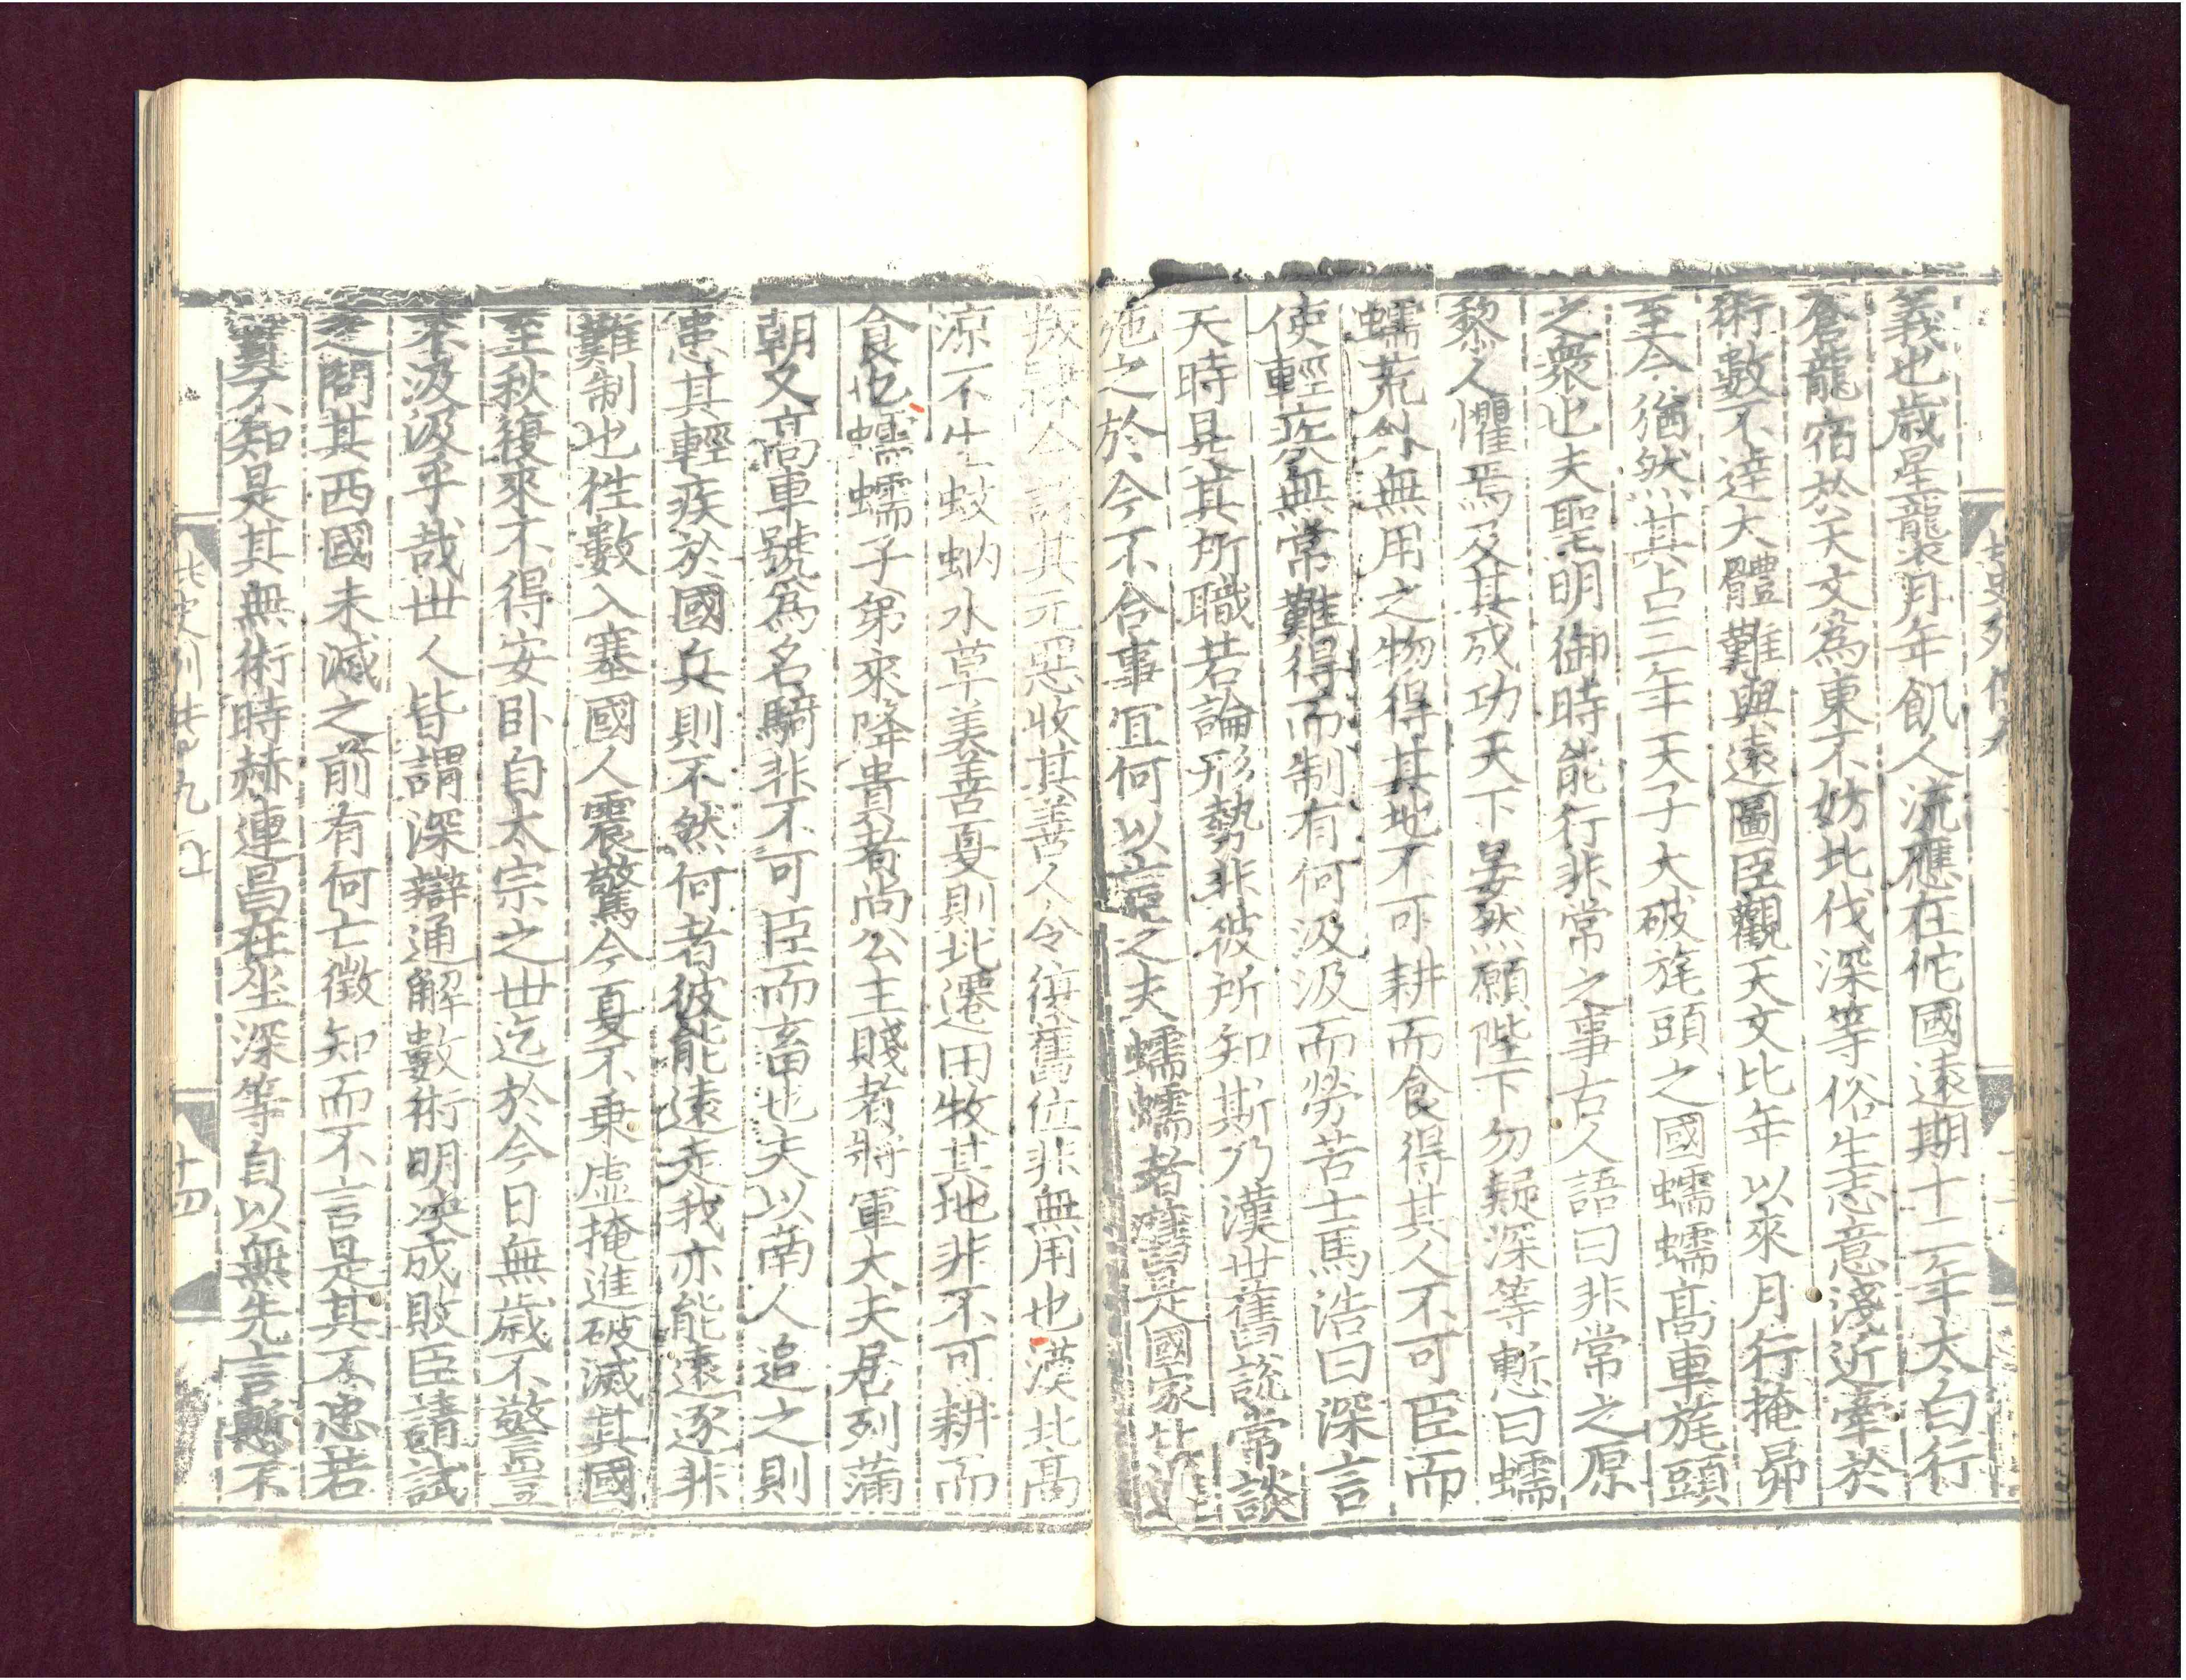 義也歲星襲月年飢人流應在佗國遠期十二年太白行
倉龍宿於天文爲東不妨北伐深等俗生志意淺近牽於
術數不達大體難與遠圖臣觀天文比年以來月行掩昴
至今猶然其占三年天子大破旄頭之國蠕蠕高車旄頭
之衆也夫聖明御時能行非常之事古人語曰非常之原
黎人懼焉及其成功天下晏然願陛下勿疑深等慙曰蠕
蠕荒外無用之物得其地不可耕而食得其人不可臣而
使輕疾無常難得而制有何汲汲而勞苦士馬浩曰深言
天時是其所職若論形勢非彼所知斯乃漢世舊說常談
施之於今不合事宜何以言之夫蠕蠕者舊是國家北邊
叛隸今誅其元惡收其善人令復舊位非無用也漠北高
涼不生蚊蚋水草美善夏則北遷田牧其地非不可耕而
食也蠕蠕子弟來降貴者尚公主賤者將軍大夫居列滿
朝又高車號爲名騎非不可臣而畜也夫以南人追之則
患其輕疾於國兵則不然何者彼能遠走我亦能遠逐非
難制也徃數入塞國人震驚今夏不乗虛掩進破滅其國
至秋復來不得安卧自太宗之世迄於今日無歲不警豈
不汲汲乎哉世人皆謂深辯通解數術明决成敗臣請試
之問其西國未滅之前有何亡徵知而不言是其不忠若
實不知是其無術時赫連昌在坐深等自以無先言慙不
北史列廿九
十四